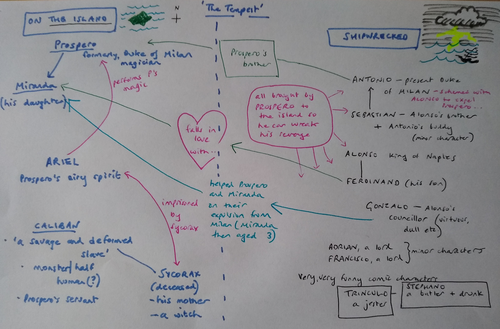 'The Tempest'
ON THE ISLAND
N
Prospero
formerly, Duke of Milan
magician
Miranda
(his daughter)
performs P's
magic
ARIEL
Prospero's airy spirit
CALIBAN
- 'a savage and deformed
slave'
- monster/half
human(?)
- Prospero's servant
SYCORAX
(deceased)
- his mother
- a witch
imprisoned
by
Sycorax
falls in
love
with...
Prospero's
brother
all brought by
PROSPERO to
the island so
he can wreak
his revenge
helped Prospero
and Miranda
on their
expulsion from
Milan (Miranda
then aged 3)
SHIPWRECKED
ANTONIO - present Duke
of MILAN - schemed with
ALONSO to expel
Prospero...
SEBASTIAN - Alonso's brother
+ Antonio's buddy
(minor character)
ALONSO king of Naples
FERDINAND (his son)
GONZALO - Alonso's
councillor (virtuous,
dull etc
ADRIAN, a lord
FRANCISCO, a lord
minor characters
very, very funny comic characters
TRINCULO -
a jester
STEPHANO
a butler + drunk